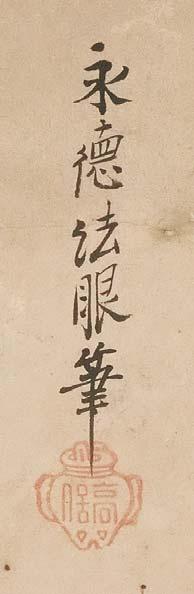 永德法眼筆